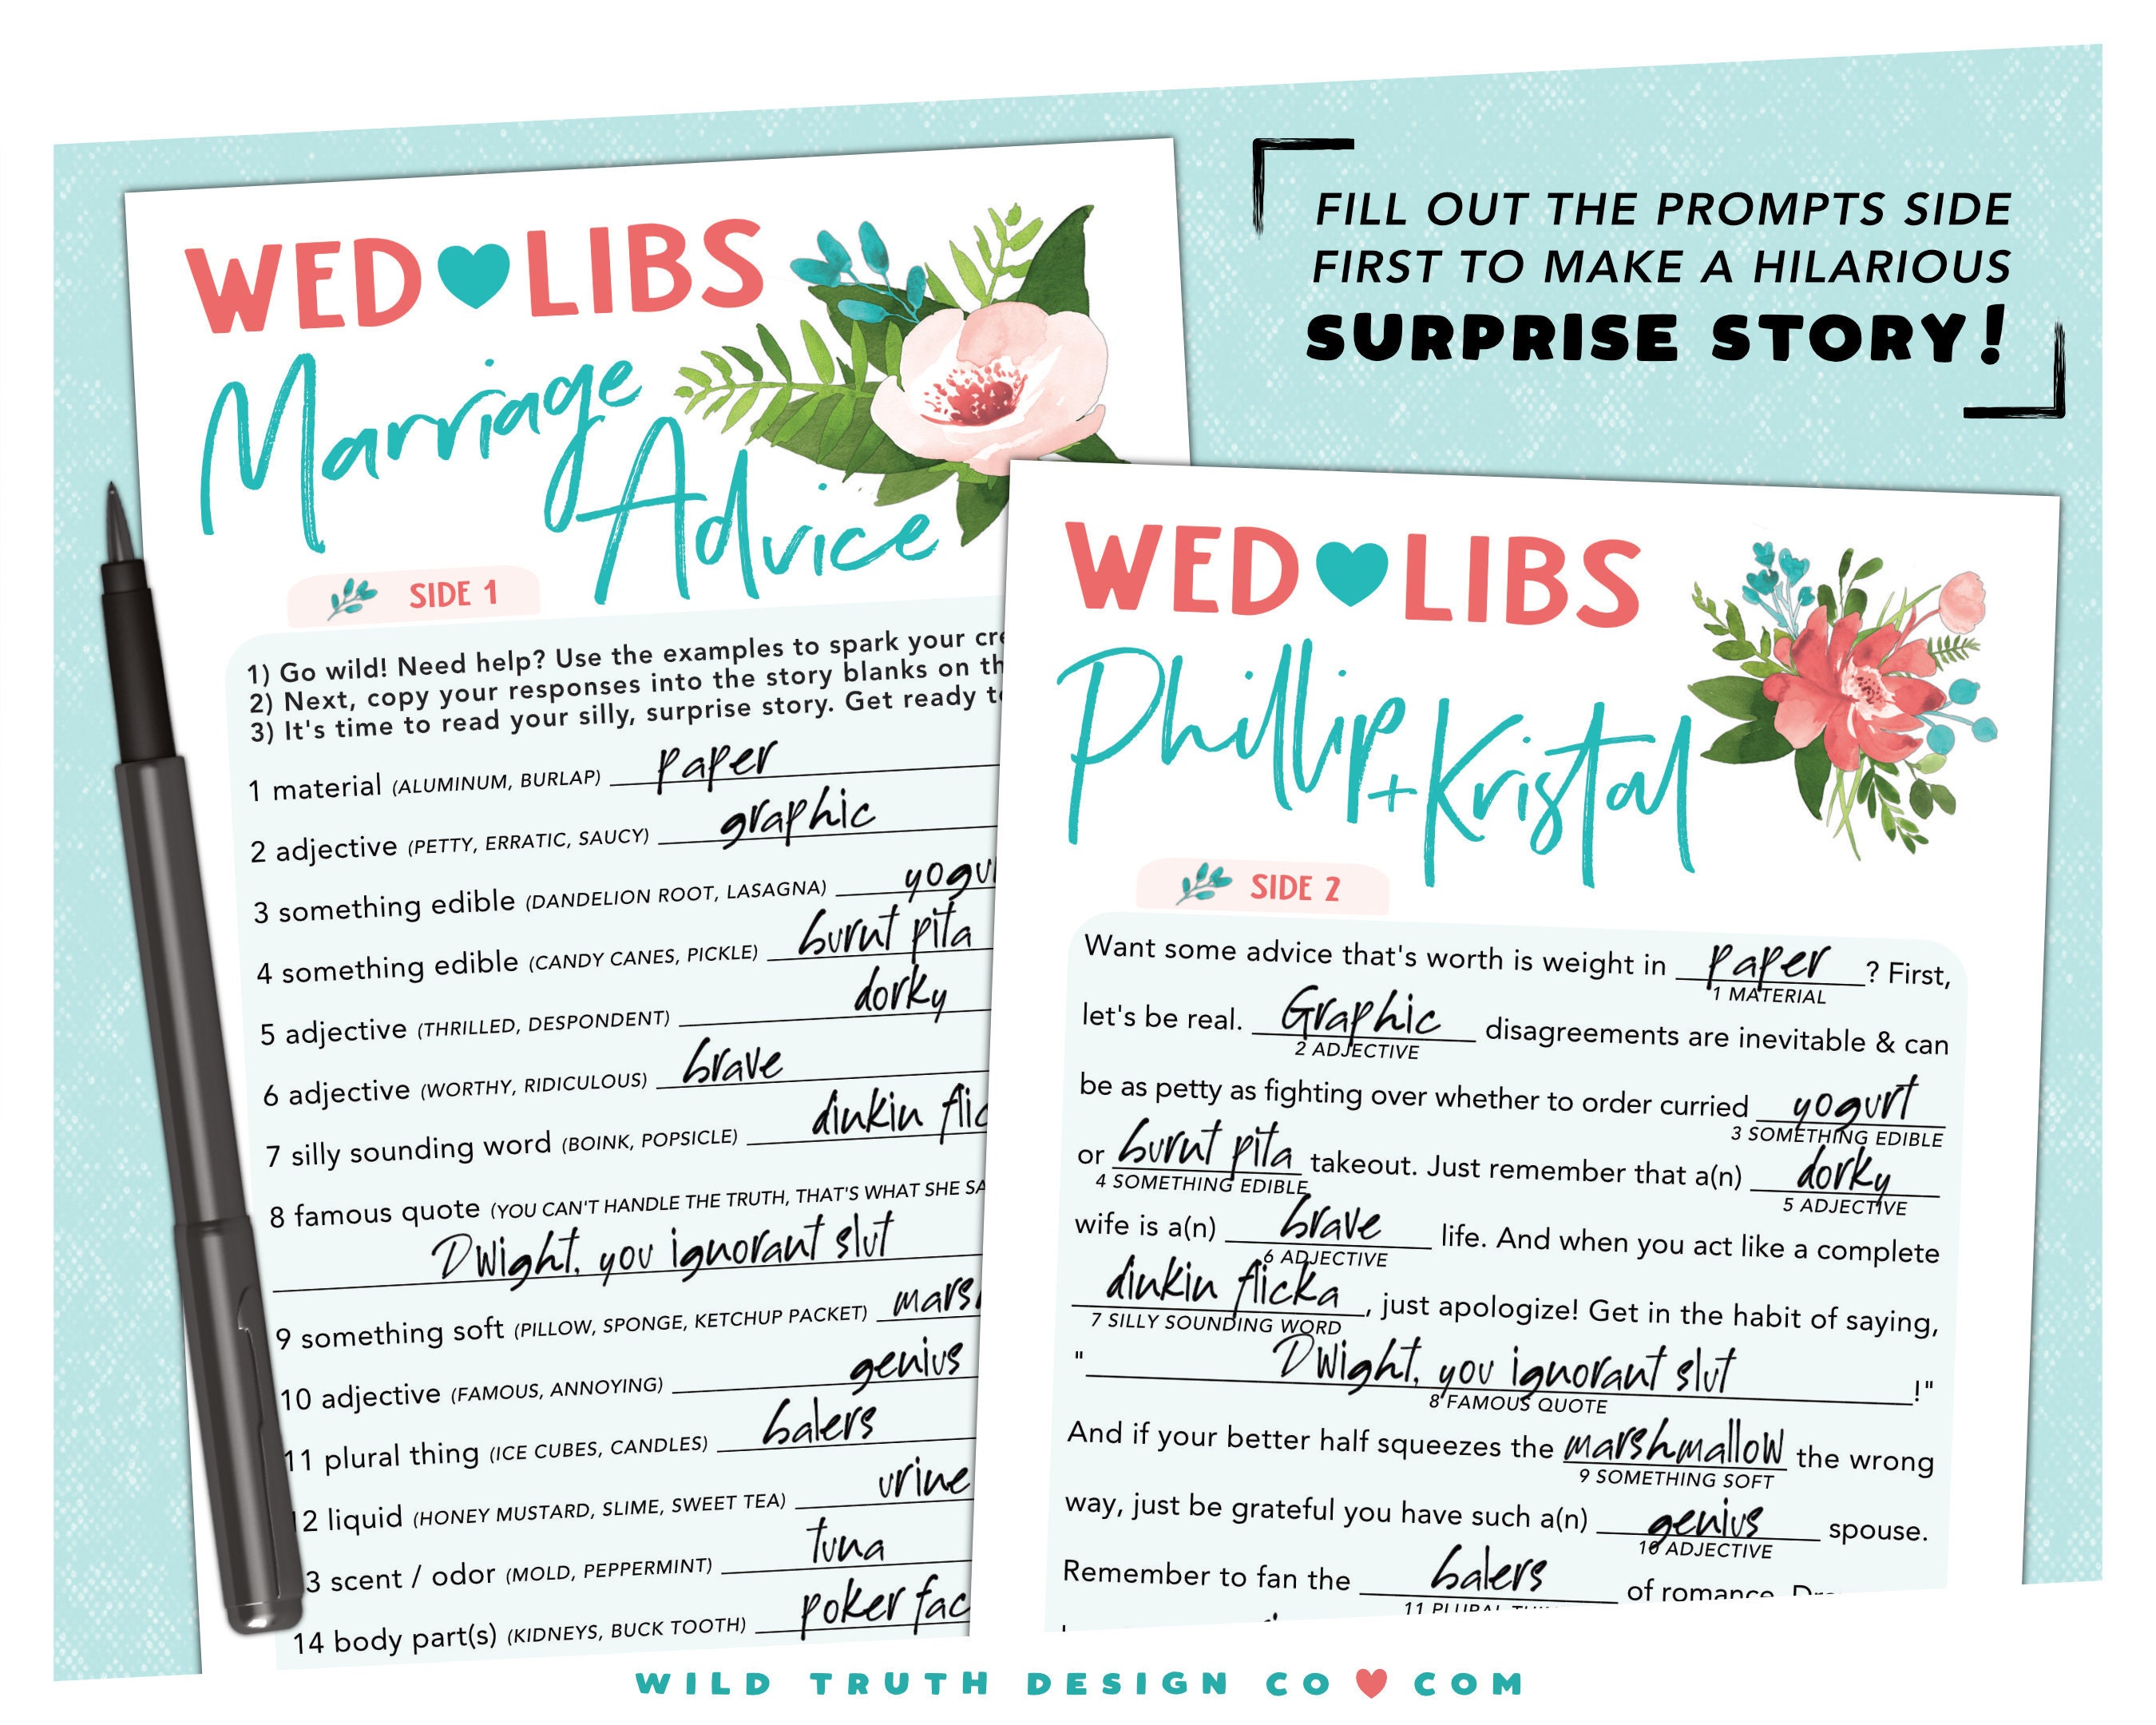 FILL OUT THE PROMPTS SIDE
FIRST TO MAKE A HILARIOUS
SURPRISE STORY!
WED LIBS
Marriage
Advice
SIDE 1
1) Go wild! Need help? Use the examples to spark your
2) Next, copy your responses into the story blanks on
3) It's time to read your silly, surprise story. Get ready
1 material (ALUMINUM, BURLAP) paper
2 adjective (PETTY, ERRATIC, SAUCY) graphic
3 something edible (DANDELION ROOT, LASAGNA) yogu
4 something edible (CANDY CANES, PICKLE) burnt pita
5 adjective (THRILLED, DESPONDENT) dorky
6 adjective (WORTHY, RIDICULOUS) brave
7 silly sounding word (BOINK, POPSICLE) dinkin flic
8 famous quote (YOU CAN'T HANDLE THE TRUTH, THAT'S WHAT SHE SA
Dwight, you ignorant slut
9 something soft (PILLOW, SPONGE, KETCHUP PACKET) mars
10 adjective (FAMOUS, ANNOYING) genius
11 plural thing (ICE CUBES, CANDLES) balers
12 liquid (HONEY MUSTARD, SLIME, SWEET TEA) urine
3 scent / odor (MOLD, PEPPERMINT) tuna
14 body part(s) (KIDNEYS, BUCK TOOTH) poker fac
WED LIBS
Phillip + Kristal
SIDE 2
Want some advice that's worth is weight in paper? First,
1 MATERIAL
let's be real. Graphic disagreements are inevitable & can
2 ADJECTIVE
be as petty as fighting over whether to order curried yogurt
3 SOMETHING EDIBLE
or burnt pita takeout. Just remember that a(n) dorky
4 SOMETHING EDIBLE 5 ADJECTIVE
wife is a(n) brave life. And when you act like a complete
6 ADJECTIVE
dinkin flicka, just apologize! Get in the habit of saying,
7 SILLY SOUNDING WORD
"Dwight, you ignorant slut!"
8 FAMOUS QUOTE
And if your better half squeezes the marshmallow the wrong
9 SOMETHING SOFT
way, just be grateful you have such a(n) genius spouse.
10 ADJECTIVE
Remember to fan the balers of romance.
11 PLURAL
WILD TRUTH DESIGN CO COM